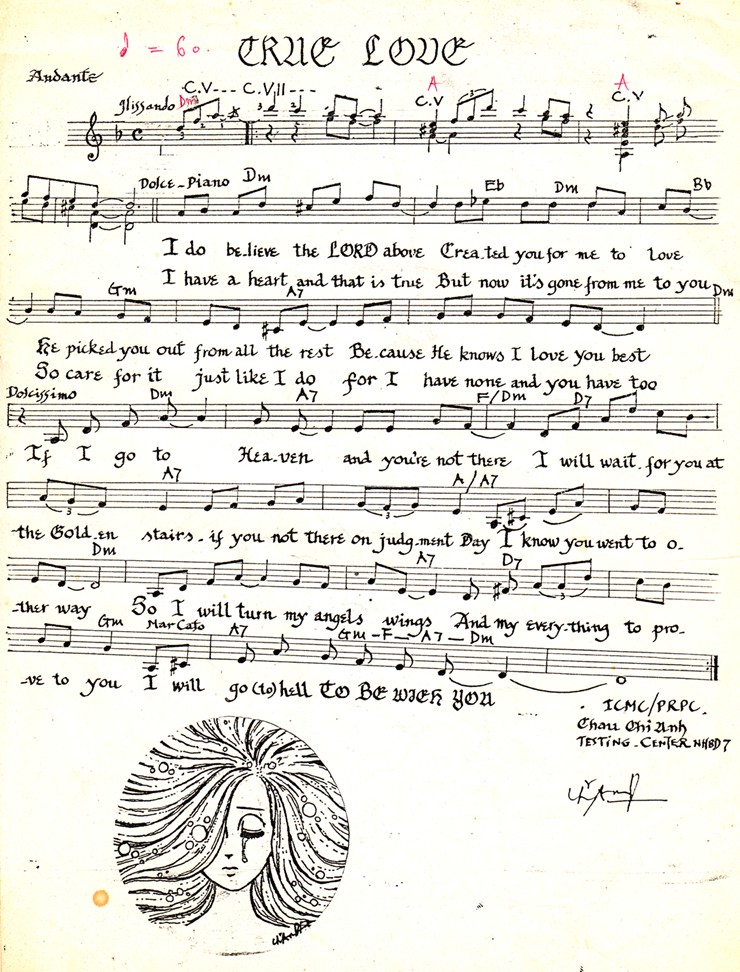 ♩ = 60.
TRUE LOVE
Andante
glissando Dm C.V--- C.VII--- A C.V A C.V
Dolce-Piano Dm Eb Dm Bb
I do be-lieve the LORD above Crea-ted you for me to love
I have a heart and that is true But now it's gone from me to you
Gm A7 Dm
He picked you out from all the rest Be-cause He knows I love you best
So care for it just like I do for I have none and you have too
Dolcissimo Dm A7 F/Dm D7
If I go to Hea-ven and you're not there I will wait for you at
A7 A/A7
the Gold-en stairs - if you not there on judg-ment Day I know you went to o-
Dm A7 D7
-ther way So I will turn my angels wings And my every-thing to pro-
Gm Marcato A7 Gm-F-A7-Dm
-ve to you I will go (to) hell TO BE WITH YOU
ICMC/PRPC.
Chau Chi Anh
TESTING-CENTER NHBD7